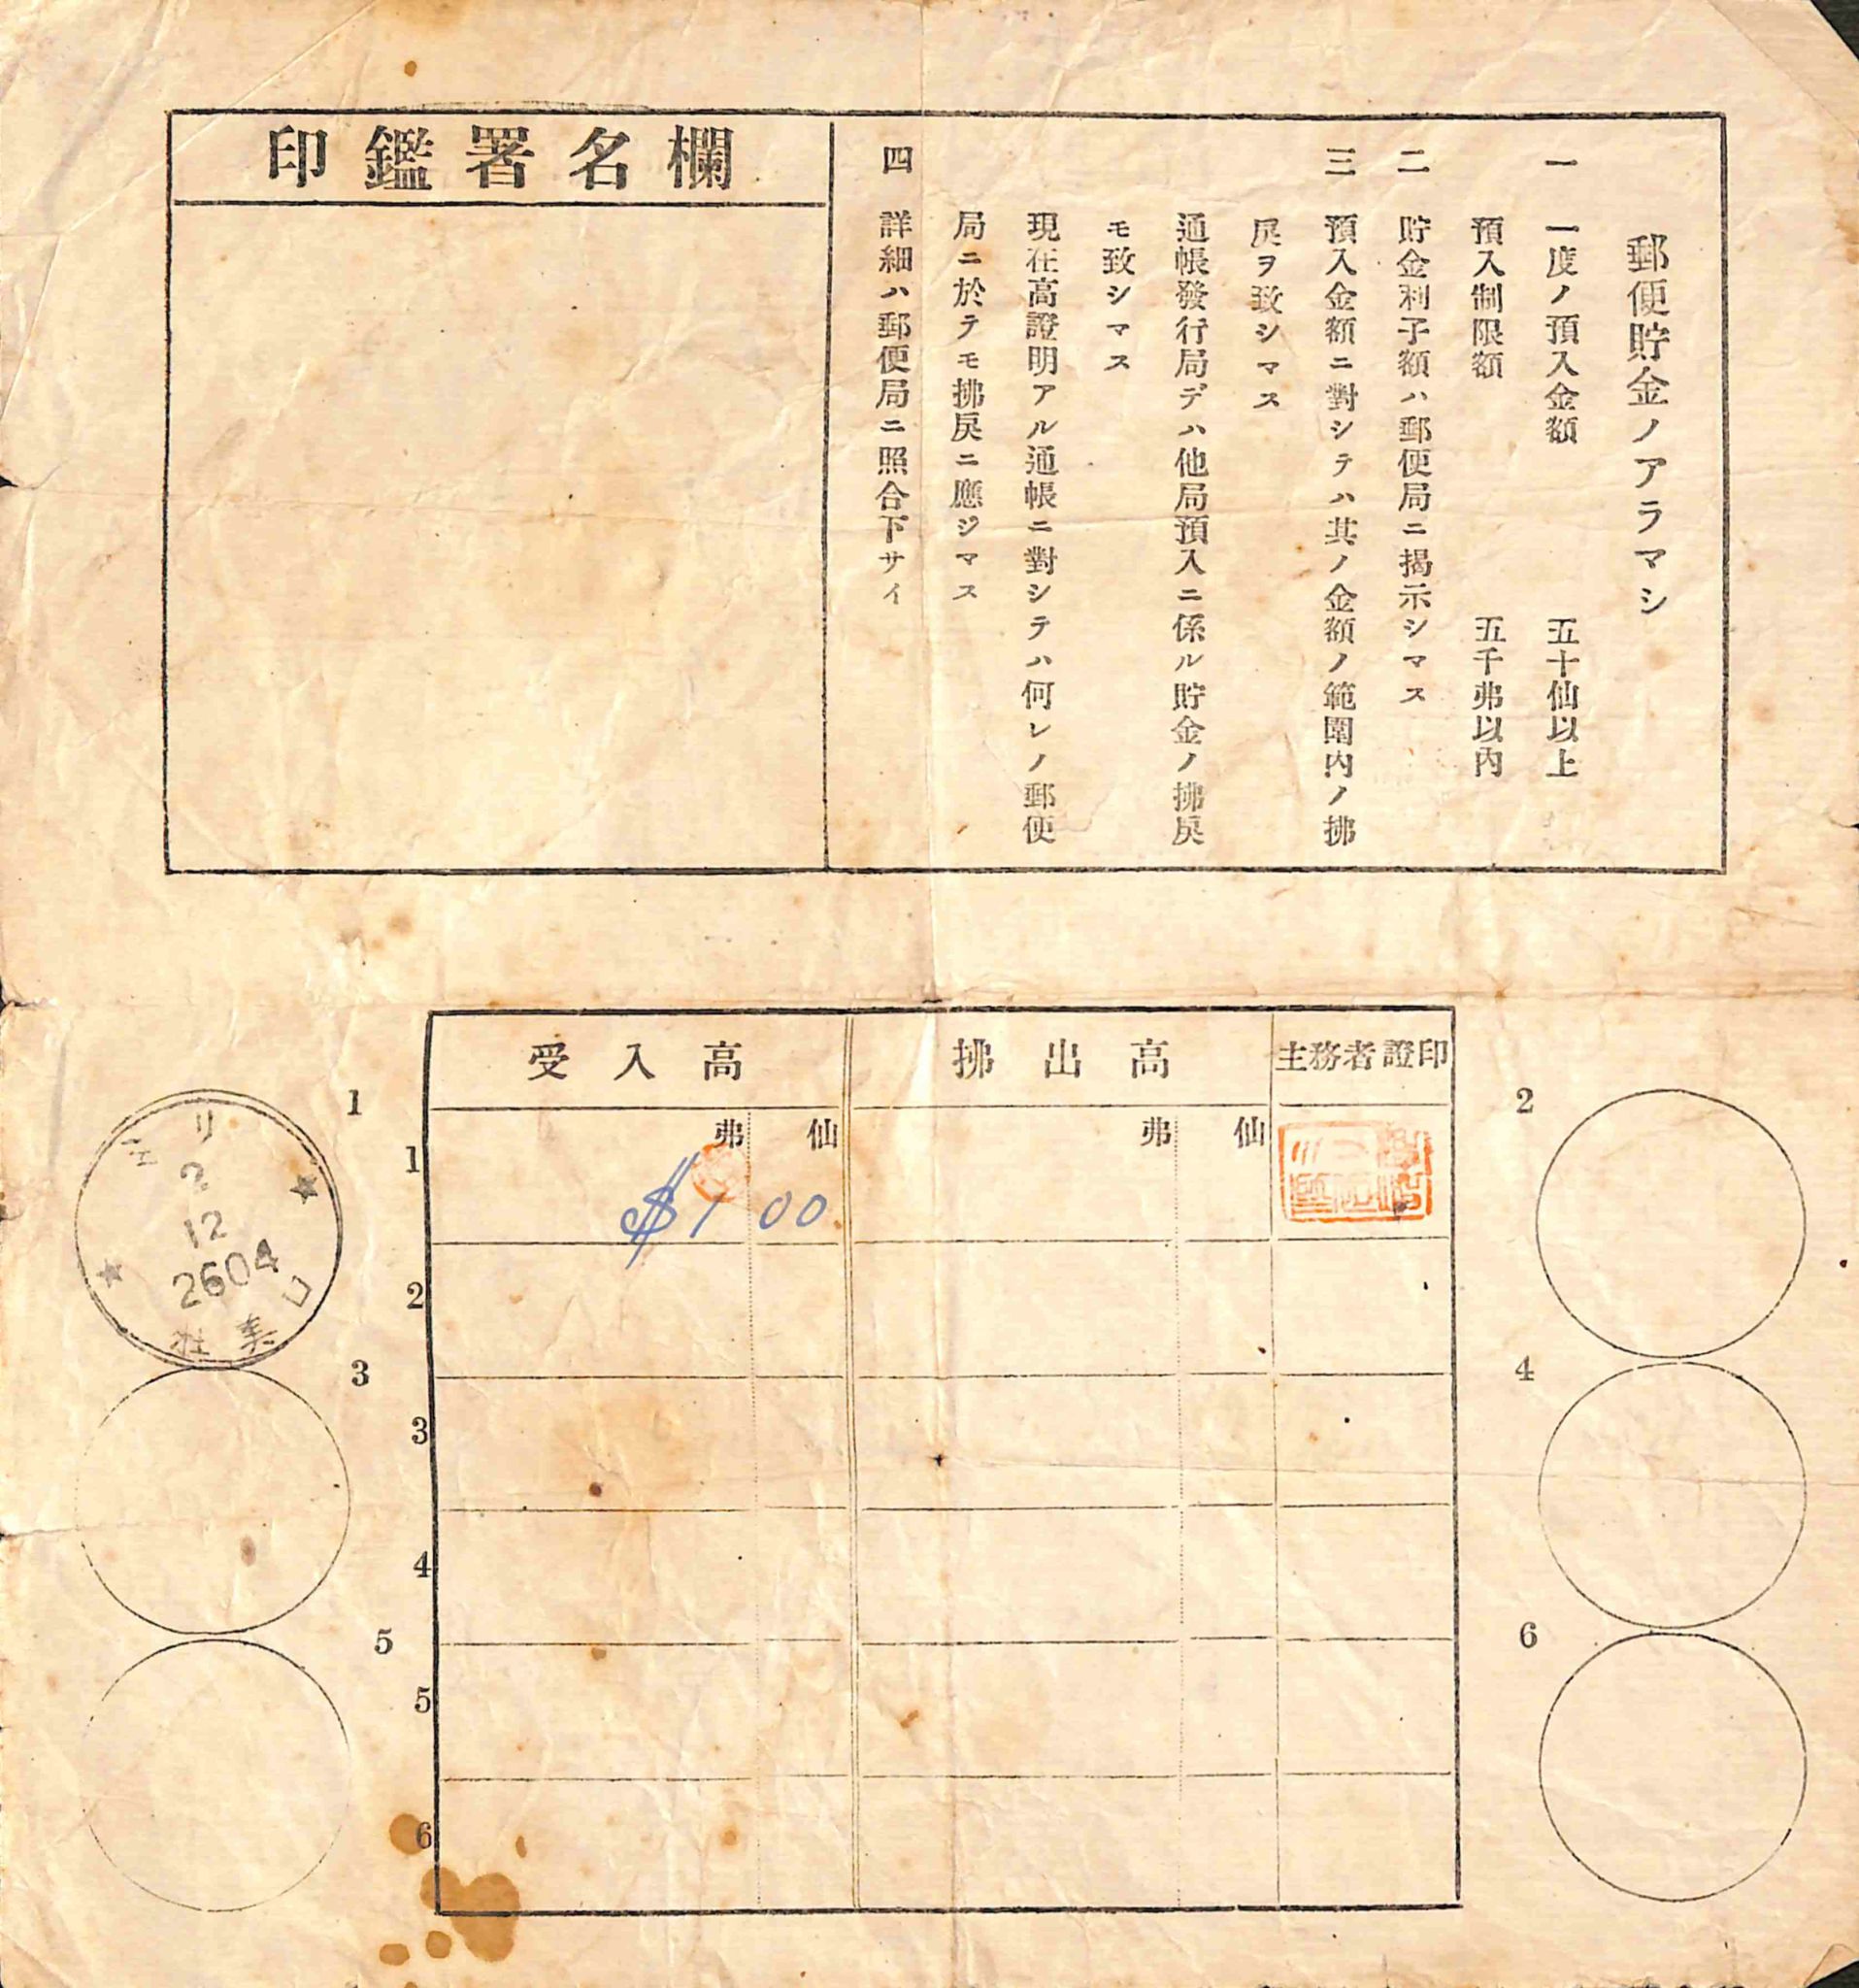 郵便貯金ノアラマシ
一 一度ノ預入金額 五十仙以上
預入制限額 五千弗以內
二 貯金利子額ハ郵便局ニ揭示シマス
三 預入金額ニ對シテハ其ノ金額ノ範圍內ノ拂
戾ヲ致シマス
通帳發行局デハ他局預入ニ係ル貯金ノ拂戾
モ致シマス
現在高證明アル通帳ニ對シテハ何レノ郵便
局ニ於テモ拂戾ニ應ジマス
四 詳細ハ郵便局ニ照合下サイ
印鑑署名欄
受入高 拂出高 主務者證印
弗 仙 弗 仙
1
2
1
$1 00
ミリ
2
12
2604
2
3
4
3
4
5
6
5
6